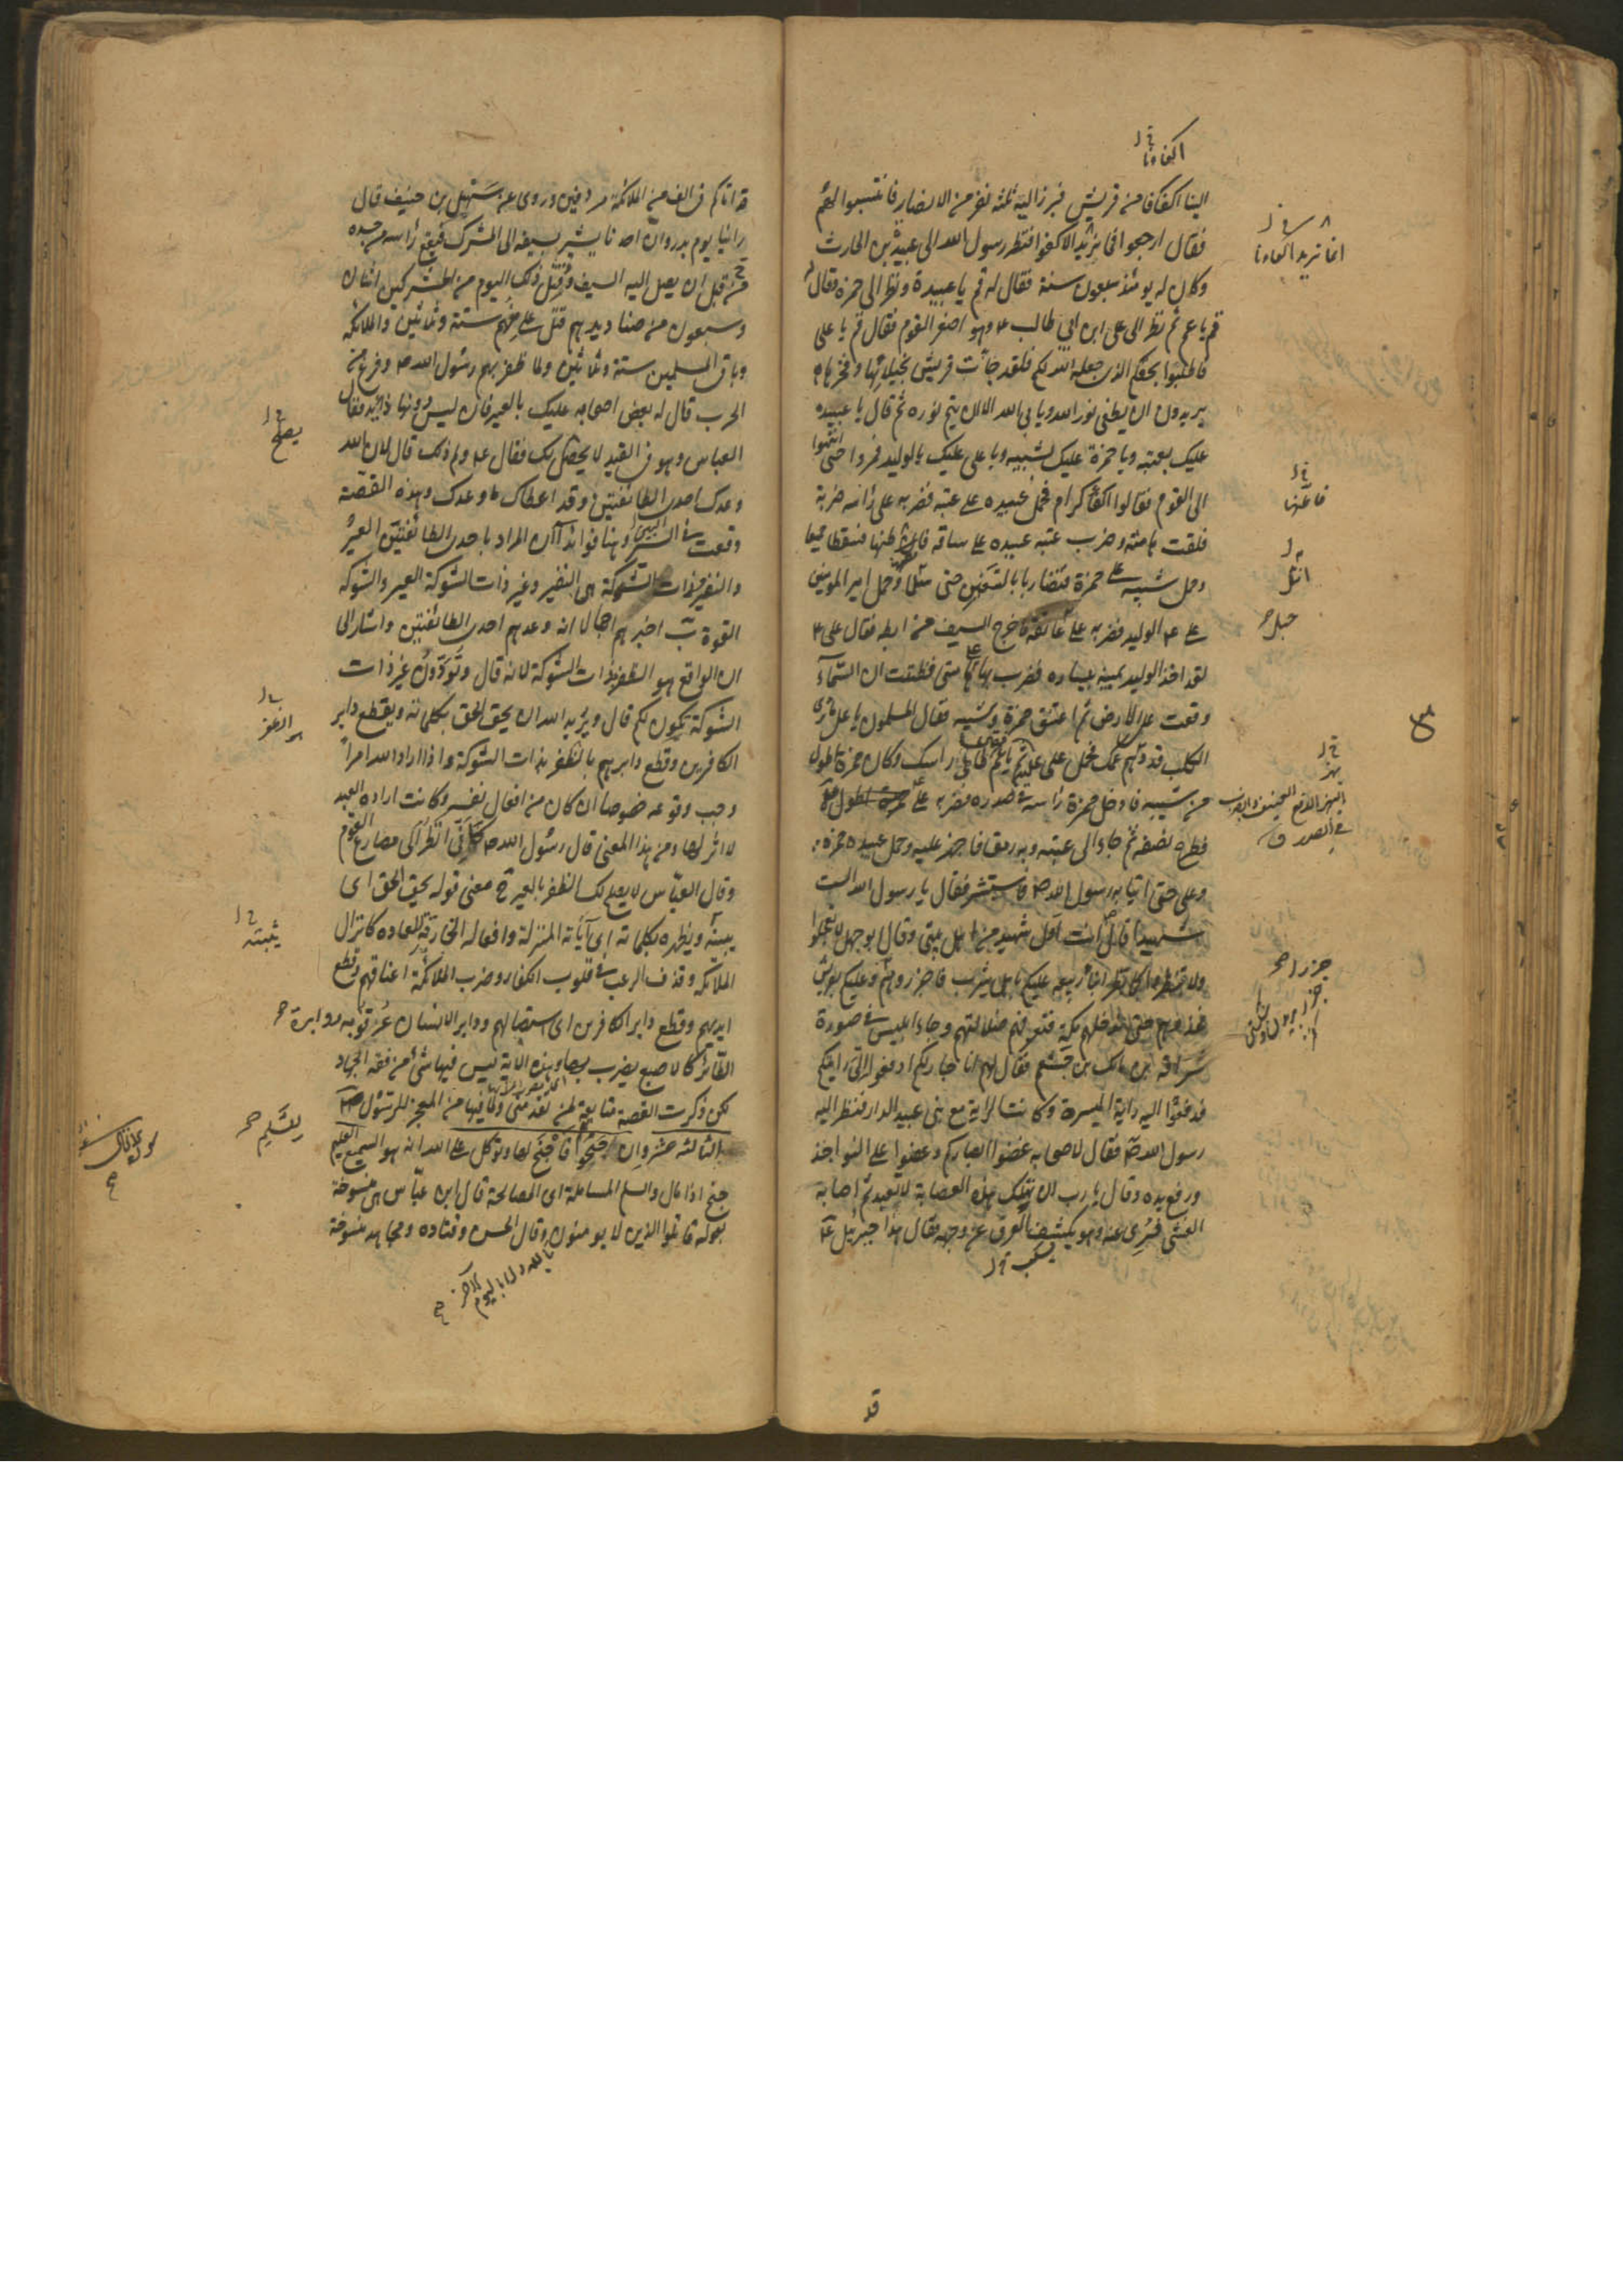 اكفاءنا
الينا اكفائنا من قريش فبرز اليه ثلثه نفر من الانصار فانتسبوا لهم
فقال ارجعوا انما نريد الاكفاء فنظر رسول الله الى عبيدة بن الحارث
وكان له يومئذ سبعون سنة فقال له قم يا عبيدة ونظر الى حمزة فقال
قم يا عم ثم نظر الى على ابن ابي طالب ع وهو اصغر القوم فقال قم يا على
فاطلبوا بحقكم الذى جعله الله لكم فلقد جائت قريش بخيلائها وفخرها
يريدون ان يطفى نور الله ويابى الله الا ان يتم نوره ثم قال يا عبيده
عليك بعتبه ويا حمزة عليك بشيبه ويا على عليك بالوليد فمروا حتى انتهوا
الى القوم فقالوا اكفاء كرام فحمل عبيده على عتبه فضربه على رأسه ضربة
فلقت هامته وضرب عتبه عبيده على ساقه فاطنها فسقطا جميعا
وحمل شيبه على حمزة فتضاربا بالسيفين حتى انثلما وحمل امير المومنين
على ع الوليد فضربه على عاتقه فاخرج السيف من ابطه فقال على ع
لقد اخذ الوليد يمينه بيساره فضرب بها هامتى فظننت ان السماء
وقعت على الارض ثم اعتنق حمزة وشيبه فقال المسلمون يا على اما ترى
الكلب قد بهر عمك فحمل على عليه ثم قال يا عم طاطئ راسك وكان حمزة اطول
من شيبه فادخل حمزة رأسه فى صدره فضربه على
فطرح نصفه ثم جاء الى عتبه وبه رمق فاجهز عليه وحمل عبيده حمزه
وعلى حتى اتيا به رسول الله ص فاستبشر فقال يا رسول الله الست
شهيدا قال انت اول شهيد من اهل بيتى وقال ابوجهل لا تعجلوا
ولا تبطروا كما بطر ابناء ربيعه عليكم باهل يثرب فاجزروهم وعليكم بقريش
فخذوهم حتى ندخلهم مكة فنعرفهم ضلالتهم وجاء ابليس فى صورة
سراقه بن مالك بن جشم فقال لهم انا جار لكم ادفعوا الى رايتكم
فدفعوا اليه راية الميسرة وكانت الراية مع بنى عبد الدار فنظر اليه
رسول الله ص فقال لاصحابه غضوا ابصاركم وعضوا على النواجذ
ورفع يده وقال يا رب ان تهلك هذه العصابة لا تعبد ثم اصابه
الغشى فسرى عنه وهو يكشف العرق عن وجهه فقال هذا جبرئيل ع
يسكب
قد
انما نريد اكفاءنا
جزرا
قد اتاكم فى الف من الملائكة مردفين وروى عن سهل بن حنيف قال
رأينا يوم بدر وان احدنا يشير بسيفه الى المشرك فيقع رأسه من جسده
من قبل ان يصل اليه السيف وقتل ذلك اليوم من المشركين اثنان
وسبعون من صناديدهم قتل على ع منهم ستة وثلاثين والملائكة
وباقى المسلمين ستة وثلاثين ولما ظفر بهم رسول الله ص وفرغ من
الحرب قال له بعض اصحابه عليك بالعير فان ليس دونها ذابّ فقال
العباس وهو فى القيد لا يحصل لك فقال ع ولم ذلك قال لان الله
وعدك احدى الطائفتين وقد اعطاك ما وعدك وهذه القصة
وقعت فى السير وهنا فوائد ا ان المراد باحدى الطائفتين العير
والنفير وذات الشوكة هى النفير وغير ذات الشوكة العير والشوكه
القوة ب اخبرهم اجمالا انه وعدهم احدى الطائفتين واشار الى
ان الواقع هو الظفر بذات الشوكة لانه قال وتودون ان غير ذات
الشوكة تكون لكم قال ويريد الله ان يحق الحق بكلماته ويقطع دابر
الكافرين وقطع دابرهم بالظفر بذات الشوكة واذا اراد الله امرا
وجب وقوعه خصوصا ان كان من افعال نفسه وكانت ارادة العبد
لا اثر لها ومن هذا المعنى قال رسول الله ص كانى انظر الى مصارع القوم
وقال العباس لا يصلح لك الظفر بالعير ج معنى قوله يحق الحق اى
يبينه ويظهره بكلماته اى آياته المنزلة وافعاله الخارقة للعاده كانزال
الملائكه وقذف الرعب فى قلوب الكفار وضرب الملائكة اعناقهم وقطع
ايديهم وقطع دابر الكافرين اى استيصالهم ودابر الانسان عرقوبه ودابرة
الطائر كالاصبع يضرب بها وهذه الاية ليس فيها شئ من فقه الجهاد
لكن ذكرت القصة متابعة لمن تقدمنى ولما فيها من المعجز للرسول ص
الثالثه عشر وان جنحوا للسلم فاجنح لها وتوكل على الله انه هو السميع العليم
جنح اذا مال والسلم المسالمة اى المصالحة قال ابن عباس هى منسوخة
بقوله قاتلوا الذين لا يومنون وقال الحسن وقتاده ومجاهد منسوخة
بالله ولا باليوم الاخر
يصلح
يثبته
للسلم